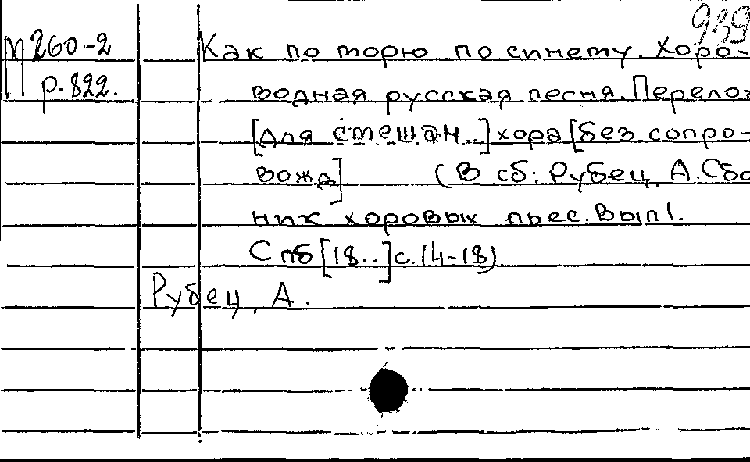 939
М 260-2 Как по морю по синему. Хоро-
р.822. водная русская песня. Перелож
[для смешан..] хора [без сопро-
вожд] (В сб: Рубец, А. Сбо
ник хоровых пьес. Вып1.
Спб [18..] с. 14-18)
Рубец, А.